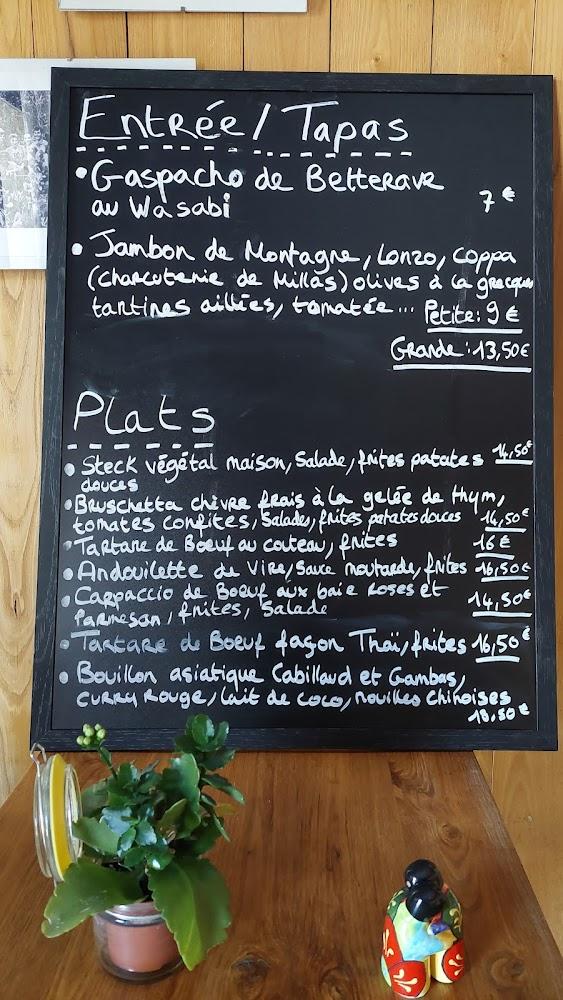 Entrée / Tapas
• Gaspacho de Betterave
au Wasabi 7 €
• Jambon de Montagne, Lonzo, Coppa
(Charcuterie de Millas) olives à la grecque
tartines aillées, tomatée ... Petite : 9 €
Grande : 13,50 €
Plats
• Steck végétal maison, Salade, frites patates 14,50 €
douces
• Bruschetta chèvre frais à la gelée de thym,
tomates confites, Salade, frites patates douces 14,50 €
• Tartare de Boeuf au couteau, frites 16 €
• Andouilette de Vire, Sauce moutarde, frites 16,50 €
• Carpaccio de Boeuf aux baie roses et
Parmesan, frites, Salade 14,50 €
• Tartare de Boeuf façon Thaï, frites 16,50 €
• Bouillon asiatique Cabillaud et Gambas,
curry Rouge, lait de coco, nouilles Chinoises